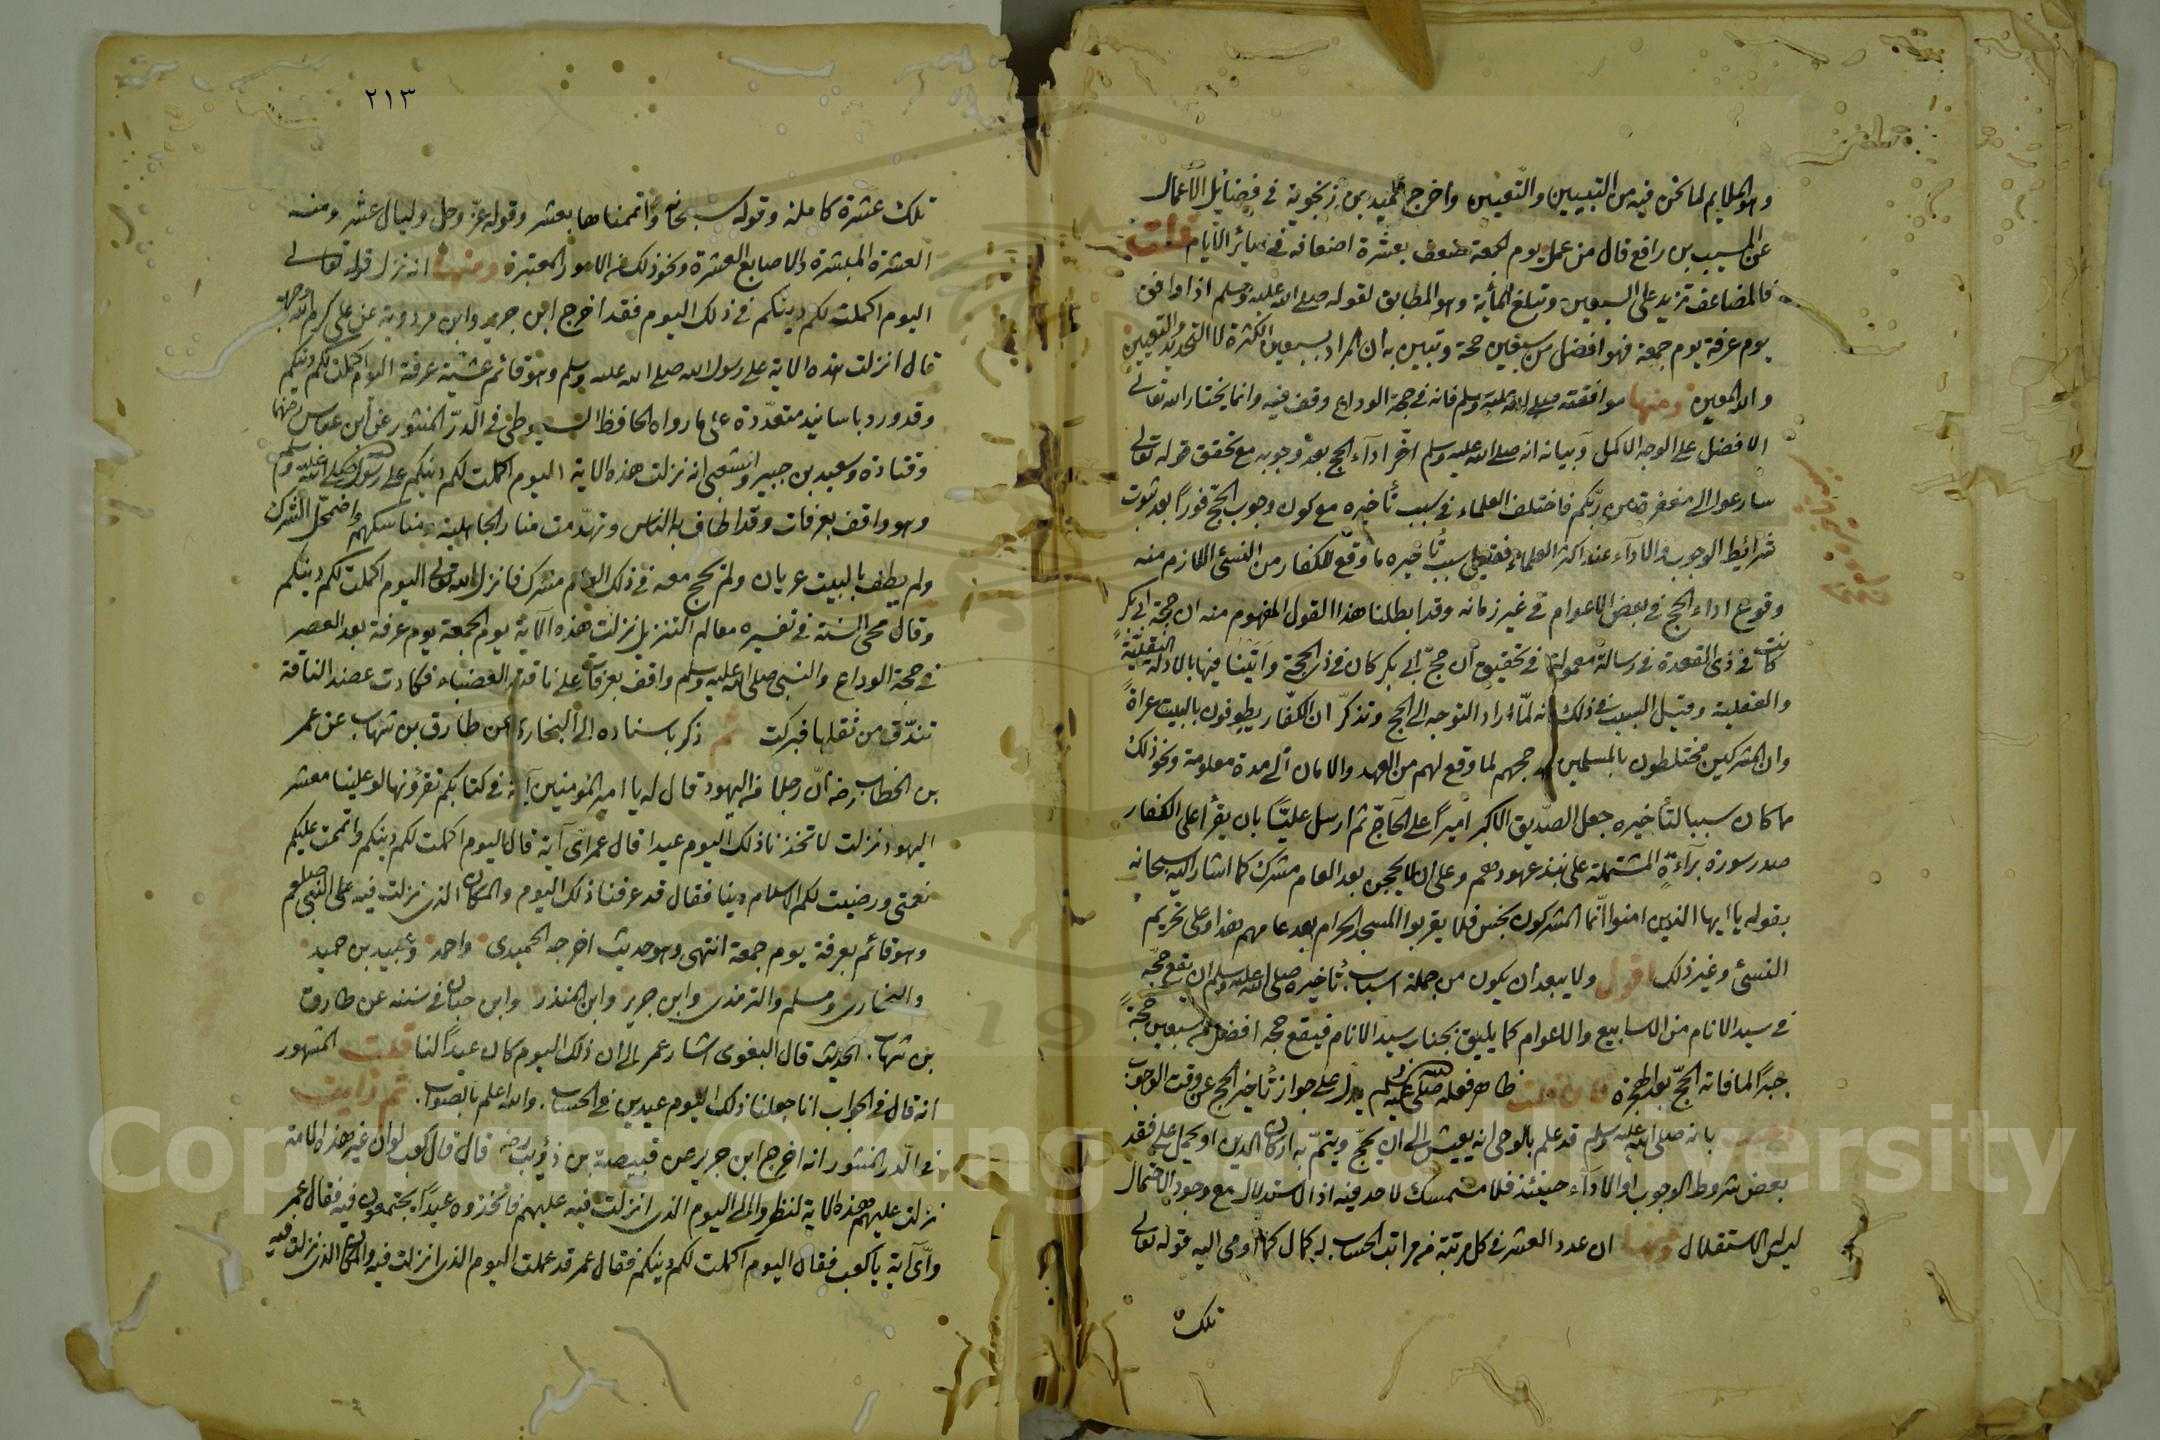 وهو الملايم لما نحن فيه من التبيين والتعيين واخرج حميد بن زنجوية في فضائل الأعمال
عن المسيب بن رافع قال من عمل يوم الجمعة ضوعف بعشرة اضعافه في سائر الايام قلت
فالمضاعف تزيد على السبعين وتبلغ المأية وهو المطابق لقوله صلى الله عليه وسلم اذا وافق
يوم عرفة يوم جمعة فهو افضل من سبعين حجة وتبين به ان المراد بسبعين الكثرة لا التحديد والتعيين
والله المعين ومنها موافقته صلى الله عليه وسلم فانه في حجة الوداع وقف فيه وانما يختار الله تعالى
الافضل على الوجه الاكمل وبيانه انه صلى الله عليه وسلم اخّر اداء الحج بعد وجوبه مع تحقق قوله تعالى
سارعوا الى مغفرة من ربكم فاختلف العلماء في سبب تأخيره مع كون وجوب الحج فوراً بعد ثبوت
شرائط الوجوب والاداء عند اكثر العلماء فقيل سبب تأخيره ما وقع للكفار من النسئ اللازم منه
وقوع اداء الحج في بعض الاعوام في غير زمانه وقد ابطلنا هذا القول المفهوم منه ان حجة ابي بكر
كانت في ذي القعدة في رسالة معمولة في تحقيق ان حج ابي بكر كان في ذي الحجة واتينا فيها بالادلة النقلية
والعقلية وقيل السبب في ذلك انه لمّا اراد التوجه الى الحج وتذكّر ان الكفّار يطوفون بالبيت عراةً
وان المشركين مختلطون بالمسلمين في حجهم لما وقع لهم من العهد والامان الى مدة معلومة ونحو ذلك
ما كان سببا لتأخيره جعل الصدّيق الاكبر اميراً على الحاجّ ثم ارسل عليّاً بان يقرأ على الكفار
صدر سورة براءة المشتملة على نبذ عهودهم وعلى ان لا يحجن بعد العام مشرك كما اشار اليه سبحانه
بقوله يا ايها الذين امنوا انّما المشركون نجس فلا يقربوا المسجد الحرام بعد عامهم هذا وعلى تحريم
النسئ وغير ذلك اقول ولا يبعد ان يكون من جملة اسباب تأخيره صلى الله عليه وسلم ان يقع حجّه
في سيد الانام من الاسابيع والاعوام كما يليق بجناب سيد الانام فيقع حجه افضل من سبعين حجةً
جبراً لما فاته الحجّ بعد الهجرة فان قلت ظاهر فعله صلى الله عليه وسلم يدل على جواز تأخير الحج عن وقت الوجوب
بانه صلى الله عليه وسلم قد علم بالوحى انه يعيش الى ان يحجّ ويتمّ به اركان الدين او يحمل على فقد
بعض شروط الوجوب او الاداء حينئذ فلا متمسك لاحد فيه اذ الاستدلال مع وجود الاحتمال
ليس له الاستقلال ومنها ان عدد العشر في كل مرتبة من مراتب الحساب له كمال كما اومى اليه قوله تعالى
تلك
٢١٣
تلك عشرة كاملة وقوله سبحانه واتممناها بعشر وقوله عزّ وجل وليال عشر ومنه
العشرة المبشرة والاصابع العشرة ونحو ذلك من الامور المعتبرة ومنها انه نزل قوله تعالى
اليوم اكملت لكم دينكم في ذلك اليوم فقد اخرج ابن جرير وابن مردوية عن علي كرم الله وجهه
قال انزلت هذه الاية على رسول الله صلى الله عليه وسلم وهو قائم عشية عرفة اليوم اكملت لكم دينكم
وقد ورد باسانيد متعدّدة على ما رواه الحافظ السيوطي في الدّر المنثور عن ابن عباس رضي عنهما
وقتادة وسعيد بن جبير والشعبي انه نزلت هذه الاية اليوم اكملت لكم دينكم على رسول الله صلى الله عليه وسلم
وهو واقف بعرفات وقد اطاف به الناس وتهدّمت منار الجاهلية ومناسكهم واضمحل الشرك
ولم يطف بالبيت عريان ولم يحج معه في ذلك العام مشرك فانزل الله تعالى اليوم اكملت لكم دينكم
وقال محى السّنة في تفسيره معالم التنزيل نزلت هذه الآية يوم الجمعة يوم عرفة بعد العصر
في حجة الوداع والنبي صلى الله عليه وسلم واقف بعرفات على ناقته العضباء فكادت عضد الناقة
تندّق من ثقلها فبركت ثم ذكر باسناده الى البخاري عن طارق بن شهاب عن عمر
بن الخطاب رضه انّ رجلا من اليهود قال له يا امير المؤمنين آية في كتابكم تقرؤنها لو علينا معشر
اليهود نزلت لاتخذنا ذلك اليوم عيدا قال عمر ائّ آية قال اليوم اكملت لكم دينكم واتممت عليكم
نعمتي ورضيت لكم الاسلام دينا فقال قد عرفنا ذلك اليوم والمكان الذى نزلت فيه على النبي صلعم
وهو قائم بعرفة يوم جمعة انتهى وهو حديث اخرجه الحميدى واحمد وعبيد بن حميد
والبخارى ومسلم والترمذى وابن جرير وابن المنذر وابن حبان في سننه عن طارق
بن شهاب الحديث قال البغوى اشار عمر الى ان ذلك اليوم كان عيداً لنا قلت المشهور
انه قال في الجواب انا جعلنا ذلك اليوم عيدين في الحساب والله اعلم بالصواب ثم رايت
في الدّر المنثور انه اخرج ابن جرير عن قبيصة بن ذؤيب رضه قال قال كعب لو ان غير هذه الامة
نزلت عليهم هذه الاية لنظروا الى اليوم الذى انزلت فيه عليهم فاتخذوه عيدا يجتمعون فيه فقال عمر
وائّ آية يا كعب فقال اليوم اكملت لكم دينكم فقال عمر قد علمت اليوم الذى انزلت فيه والمكان الذى نزلت فيه
Copyright © King Saud University